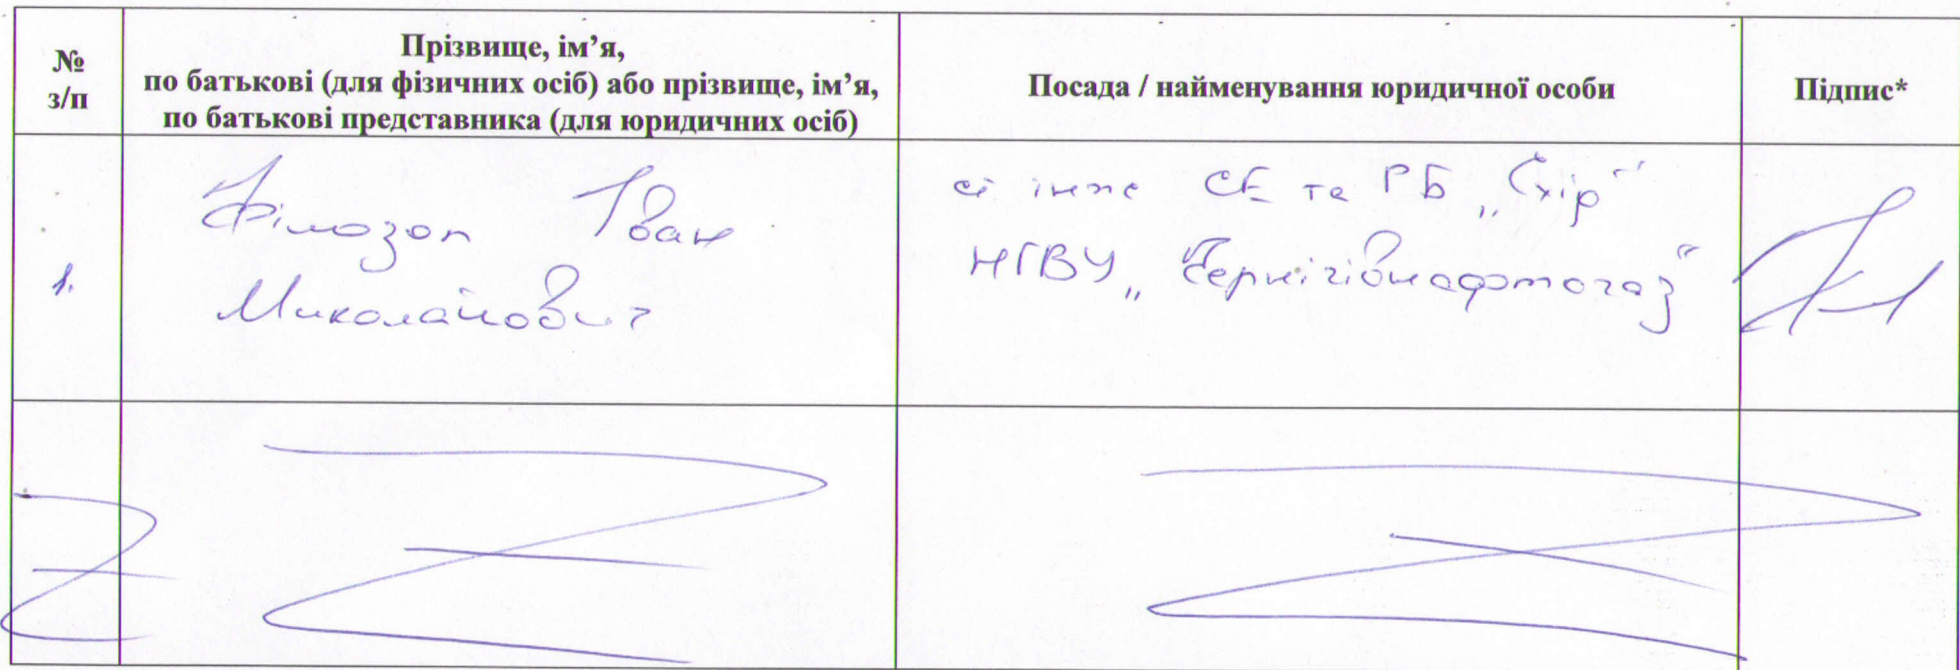 №
з/п
Прізвище, ім’я,
по батькові (для фізичних осіб) або прізвище, ім’я,
по батькові представника (для юридичних осіб)
Посада / найменування юридичної особи
Підпис*
1.
Філозоп Іван
Миколайович
інж СЕ та РБ
НГВУ „Чернігівнафтогаз"